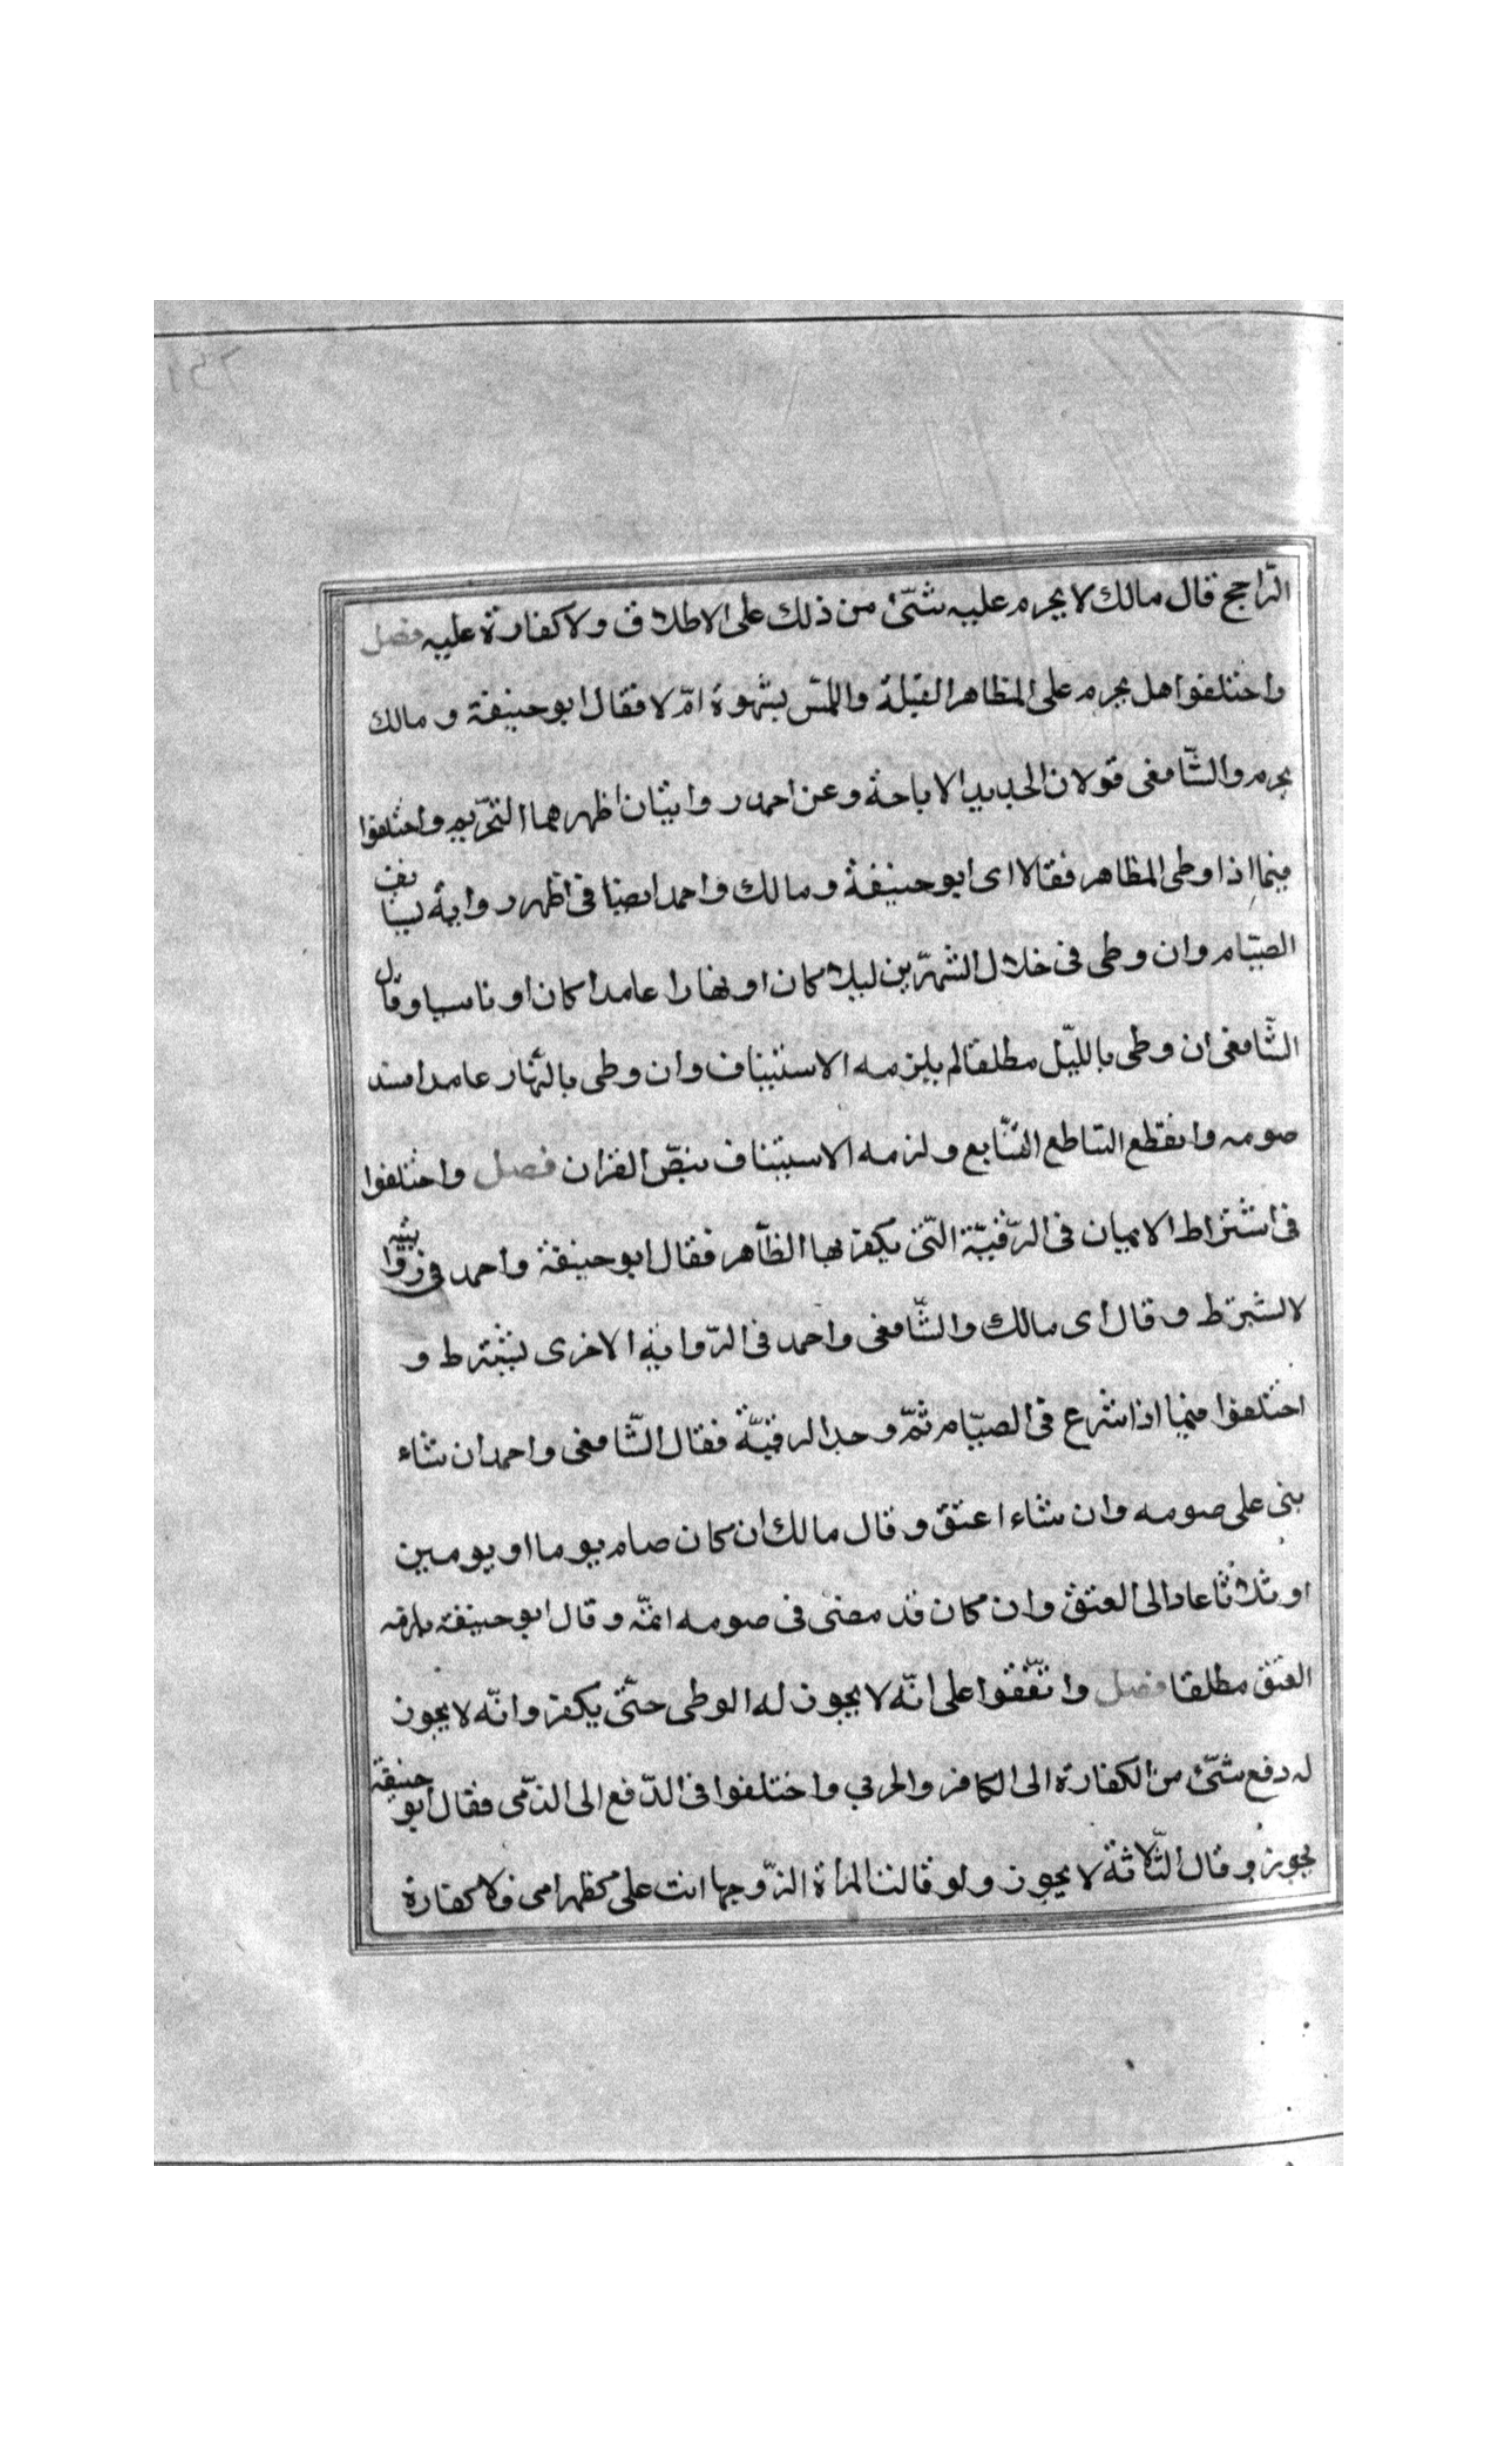 الرّاجح قال مالك لا يحرم عليه شئ من ذلك على الاطلاق ولا كفارة عليه فصل
واختلفوا هل يحرم على المظاهر القبلة واللمس بشهوة ام لا فقال ابو حنيفة و مالك
يحرم والشّافعى قولان الجديد الاباحة وعن احمد روايتان اظهرهما التحريم واختلفوا
فيما اذا وطى المظاهر فقالا اى ابو حنيفة و مالك واحمد ايضا فى اظهر رواية يستانف
الصيّام وان وطى فى خلال الشهرين ليلا كان او نهارا عامدا كان او ناسيا وقال
الشّافعى ان وطى بالليّل مطلقا لم يلزمه الاستيناف وان وطى بالنّهار عامدا فسد
صومه وانقطع التتاطع التّتابع ولزمه الاستيناف بنصّ القران فصل واختلفوا
فى اشتراط الايمان فى الرّقبة الّتى يكفر بها الظّاهر فقال ابو حنيفة واحمد فى رواية
لا لشترط و قال اى مالك والشّافعى واحمد فى الرّواية الاخرى يشترط و
اختلفوا فيما اذا شرع فى الصيّام ثمّ وجد الرقبّة فقال الشّافعى واحمد ان شاء
بنى على صومه وان شاء اعتق و قال مالك ان كان صام يوما او يومين
او ثلاثا عاد الى العتق وان كان قد مضى فى صومه اتمّه و قال ابو حنيفة يلزمه
العتق مطلقا فصل واتّفقوا على انّه لا يجوز له الوطى حتّى يكفر وانّه لا يجوز
له دفع شئ من الكفارة الى الكافر والحربي واختلفوا فى الدّفع الى الذّمى فقال ابو حنيفة
يجوز و قال الثّلاثة لا يجوز ولو قالت المراة الزّوجها انت على كظهر امى فلا كفارة